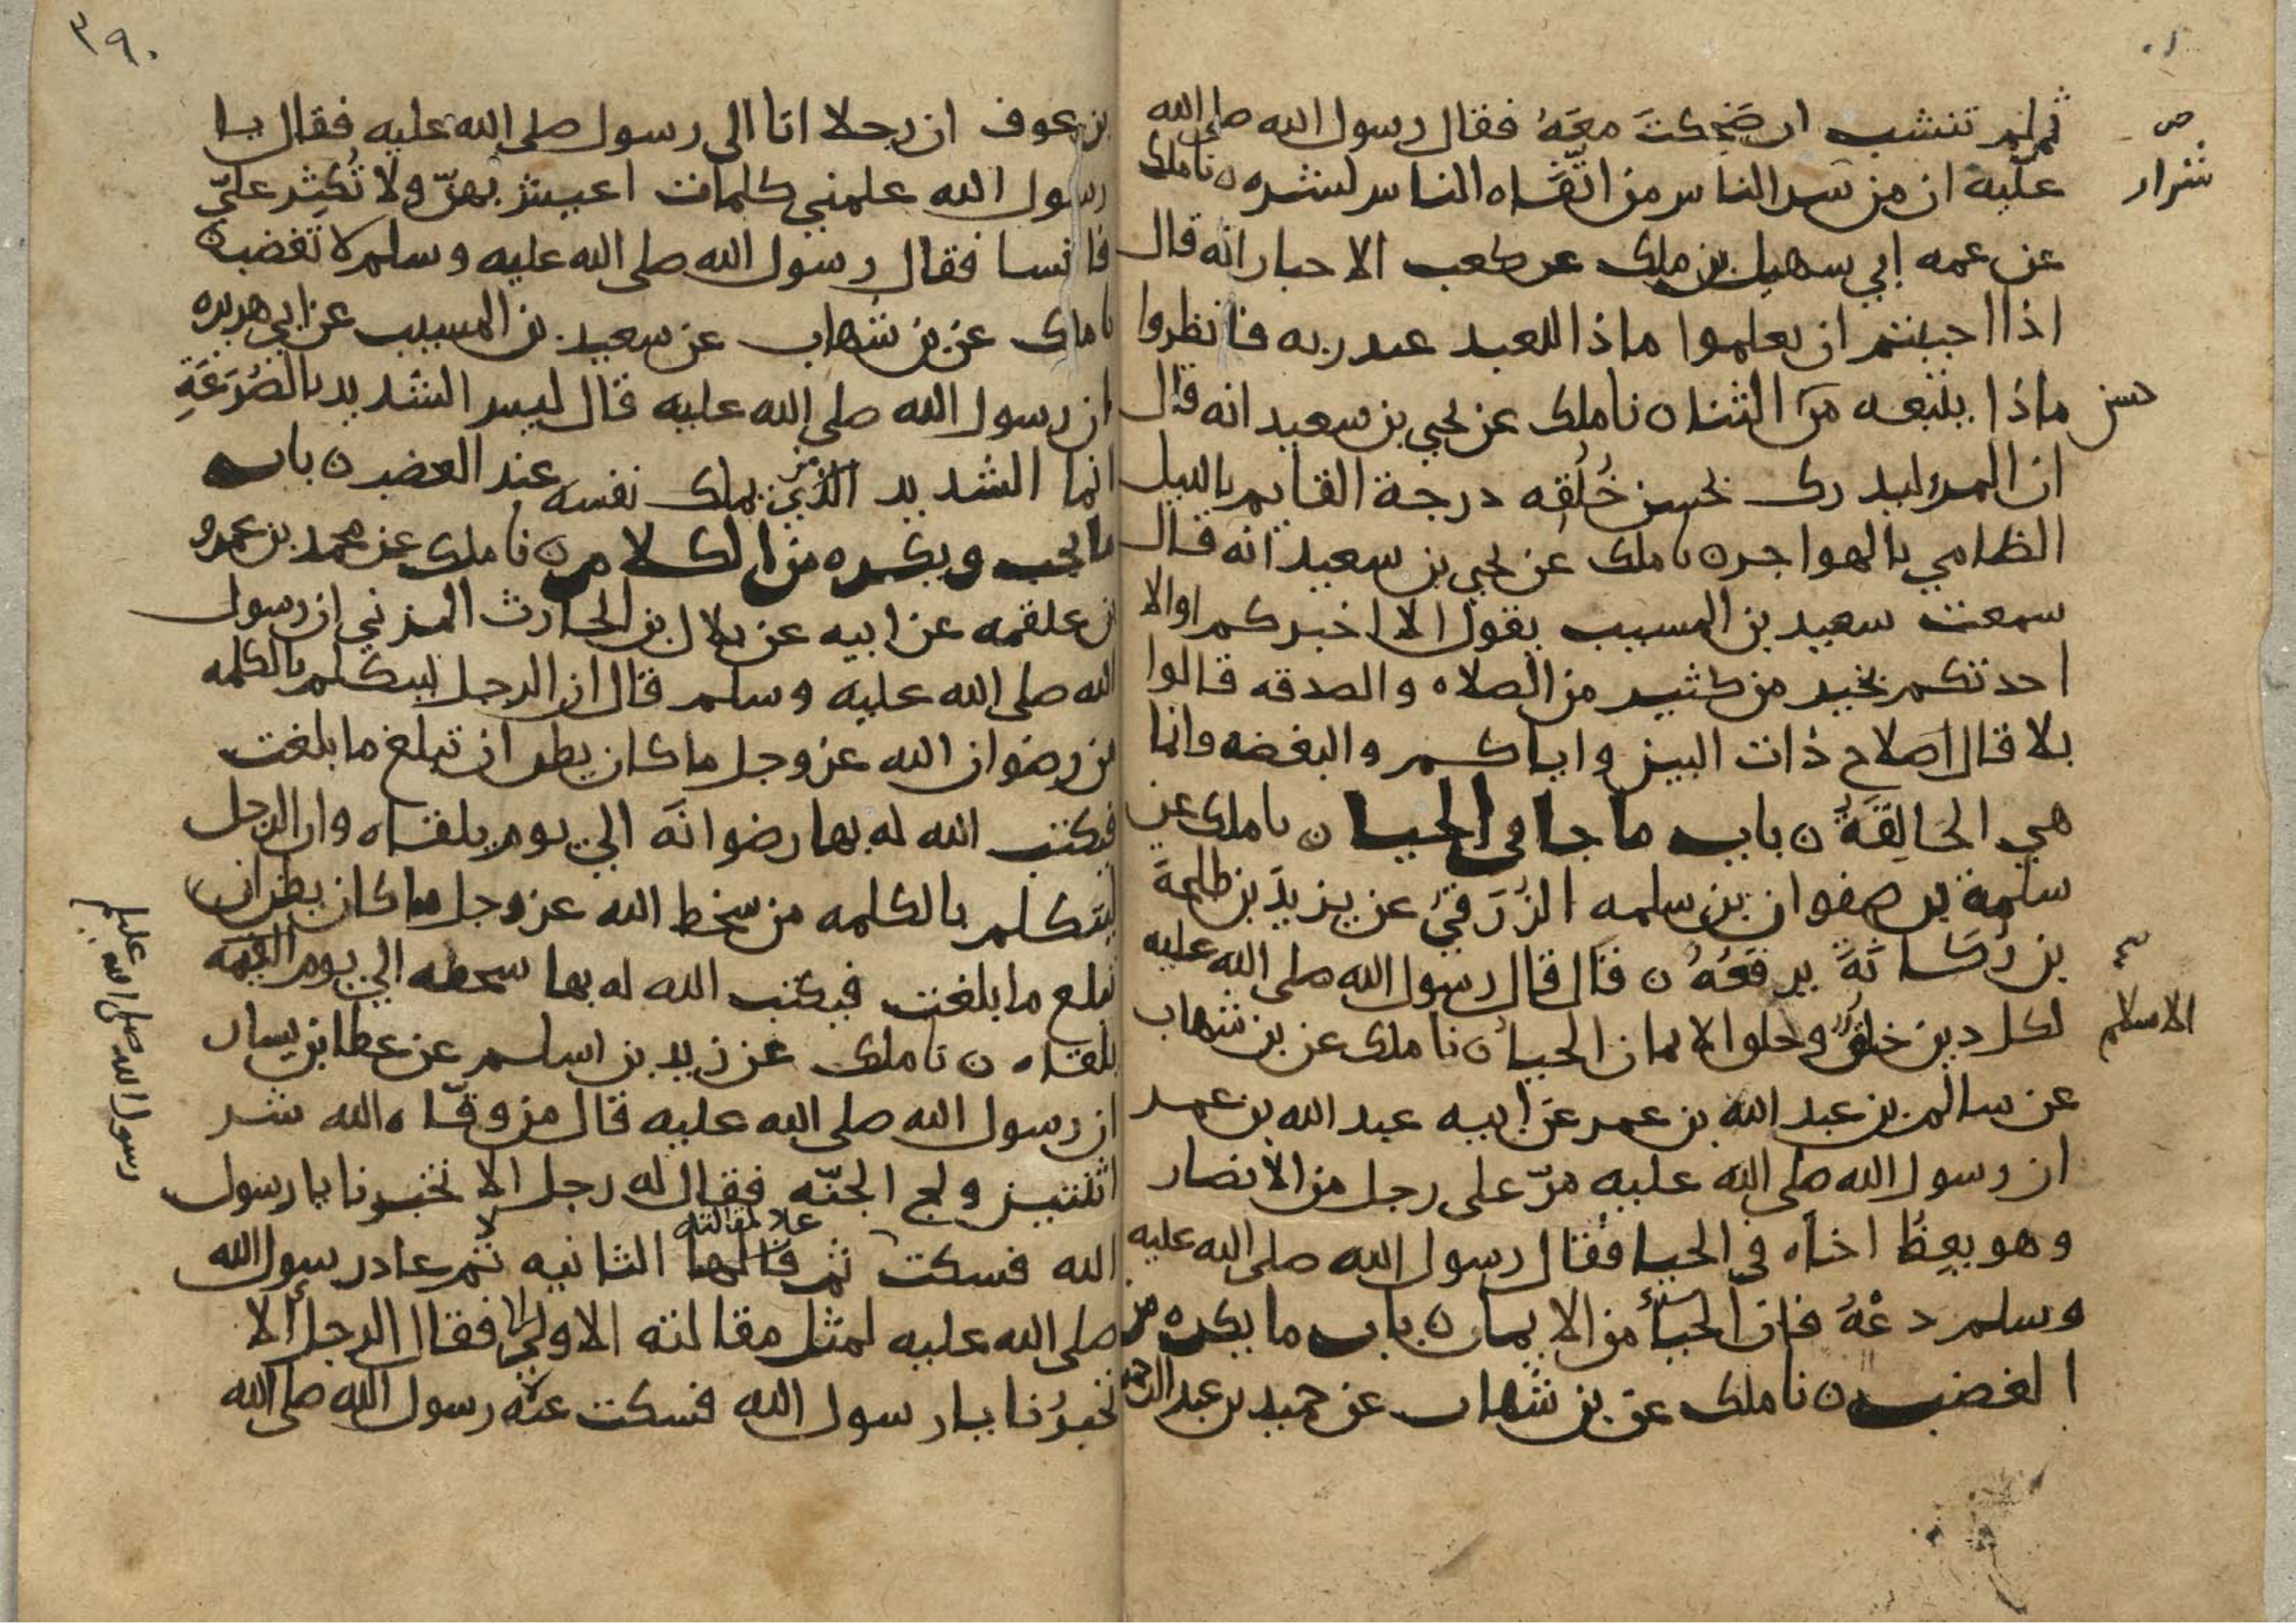 ص
شرار
ثم لم تنشب ان ضَحِكتَ معَهُ فقال رسول الله صلى الله
عليه ان من شر الناس من اتّقاه الناس لشره ٥ نا ملك
عن عمه ابي سهيل بن ملك عن كعب الاحبار انه قال
اذا احببتم ان تعلموا ماذا للعبد عند ربه فانظروا
ماذا يتبعه من الثناه نا ملك عن يحيي بن سعيد انه قال
حسن
ان المرء ليدرك بحسن خُلُقه درجة القايم بالليل
الظامي بالهواجر ٥ نا ملك عن يحيي بن سعيد انه قال
سمعت سعيد بن المسيب يقول الا اخبركم او الا
احدثكم بخير من كثير من الصلاه والصدقه قالوا
بلا قال اصلاح ذات البين واياكم والبغضه فانما
هي الحَالِقَةُ ٥ باب ما جا في الحيا ٥ نا ملك عن
سلمة بن صفوان بن سلمه الزُرَقيّ عن يزيد بن طلحة
بن رُكَانَةَ يرفعُهُ ٥ قال قال رسول الله صلى الله عليه
لكل دين خلقٌ وخلق الايمان الحياُ ٥ نا ملك عن بن شهاب
الاسلام
عن سالم بن عبد الله بن عمر عن ابيه عبد الله بن عمر
ان رسول الله صلى الله عليه مرّ على رجل من الانصار
وهو يعِظُ اخاه في الحيا فقال رسول الله صلى الله عليه
وسلم دعْهُ فان الحيأ من الايمان ٥ باب ما يكره من
الغضب ٥ نا ملك عن بن شهاب عن حميد بن عبد الرحمن
٣٩٠
بن عوف ان رجلا اتا الى رسول صلى الله عليه فقال يا
رسول الله علمني كلمات اعيش بهنّ ولا تُكثِر عليّ
فانسا فقال رسول الله صلى الله عليه وسلم لا تغضب ٥
نا ملك عن بن شهاب عن سعيد بن المسيب عن ابي هريره
ان رسول الله صلى الله عليه قال ليس الشديد بالصُرَعَةِ
انما الشديد الذي من يملك نفسه عند الغضب ٥ باب
ما يجب ويكره من الكلام ٥ نا ملك عن محمد بن عمرو
بن علقمه عن ابيه عن بلال بن الحارث المزني ان رسول
الله صلى الله عليه وسلم قال ان الرجل ليتكلم بالكلمه
من رضوان الله عز وجل ما كان يظن ان تبلغ ما بلغت
فيكتب الله له بها رضوانَه الي يوم يلقاه وان الرجل
ليتكلم بالكلمه من سخط الله عز وجل ما كان يظن ان
تبلغ ما بلغت فيكتب الله له بها سخطه الي يوم القيمه
يلقاه ٥ نا ملك عن زيد بن اسلم عن عطا بن يسار
ان رسول الله صلى الله عليه قال من وقّاه الله شر
اثنتين ولج الجنّه فقال له رجل الا تخبرنا يا رسول
الله فسكت ثم قالها الثانيه ثم عاد رسول الله
عاد لمقالته
صلى الله عليه لمثل مقالته الاولي فقال الرجل ألا
تخبرُنا يا رسول الله فسكت عنه رسول الله صلى الله
رسول الله صلى الله عليه